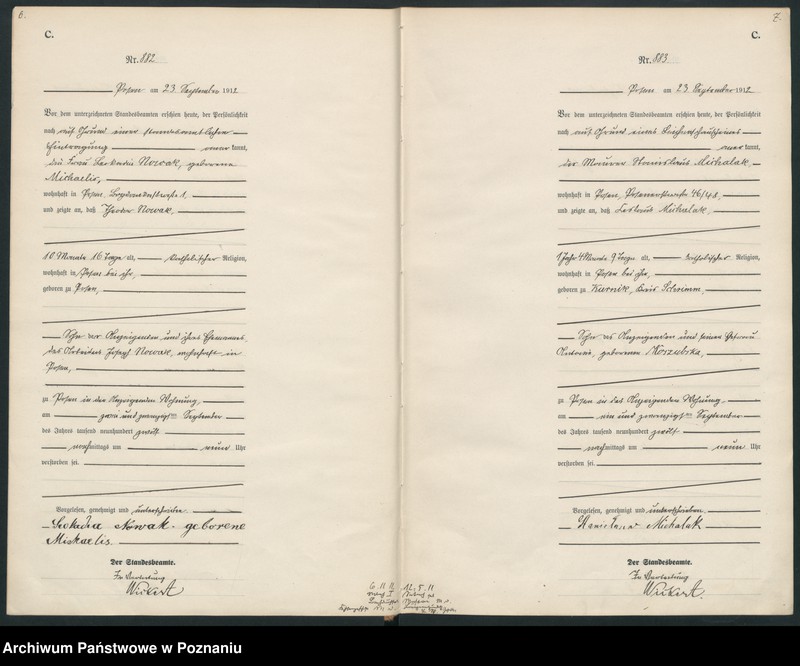 6.
C.
Nr. 882
Posen am 23. September 1912
Vor dem unterzeichneten Standesbeamten erschien heute, der Persönlichkeit
nach auf Grund einer standesamtlichen
Eintragung kannt,
die Frau Nowak, geborene
Michaelis,
wohnhaft in Posen, 1,
und zeigte an, daß Theodor Nowak,
10 Monate 16 Tage alt, katholischer Religion,
wohnhaft in Posen bei ihr,
geboren zu Posen,
Sohn der Anzeigenden und ihres Ehemannes
des Arbeiters Joseph Nowak, wohnhaft in
Posen,
zu Posen in der Anzeigenden Wohnung,
am zwei und zwanzigsten September
des Jahres tausend neunhundert zwölf
mittags um neun Uhr
verstorben sei.
Vorgelesen, genehmigt und unterschrieben
Leokadia Nowak geborene
Miskaelis
Der Standesbeamte.
In Vertretung
Wickert
7.
C.
Nr. 883
Posen am 23. September 1912
Vor dem unterzeichneten Standesbeamten erschien heute, der Persönlichkeit
nach auf Grund eines Leichenschauscheines
kannt,
der Maurer Stanislaus Michalak,
wohnhaft in Posen, 46/48,
und zeigte an, daß Michalak,
1 Jahr 4 Monate 9 Tage alt, katholischer Religion,
wohnhaft in Posen bei ihm,
geboren zu Kurnik, Kreis Schrimm,
Sohn des Anzeigenden und seiner Ehefrau
Antonie, geborenen
zu Posen in des Anzeigenden Wohnung
am ein und zwanzigsten September
des Jahres tausend neunhundert zwölf
nachmittags um neun Uhr
verstorben sei.
Vorgelesen, genehmigt und unterschrieben
Michalak
Der Standesbeamte.
In Vertretung
Wickert.
Archiwum Państwowe w Poznaniu